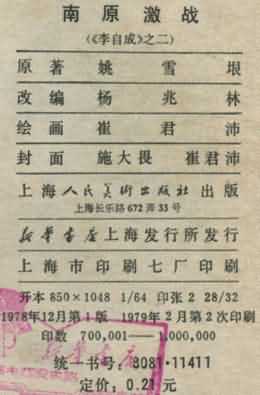 南原激战
(《李自成》之二)
原著 姚雪垠
改编 杨兆林
绘画 崔君沛
封面 施大畏 崔君沛
上海人民美术出版社出版
上海长乐路672弄33号
新华书店上海发行所发行
上海市印刷七厂印刷
开本 850×1048 1/64 印张 2 28/32
1978年12月第1版 1979年2月第2次印刷
印数 700,001——1,000,000
统一书号: 8081·11411
定价: 0.21元